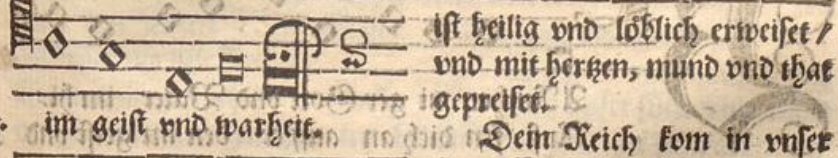 im geist vnd warheit.
ist heilig vnd löblich erweiset /
vnd mit hertzen, mund vnd that
gepreiset.
Dein Reich kom in vnser